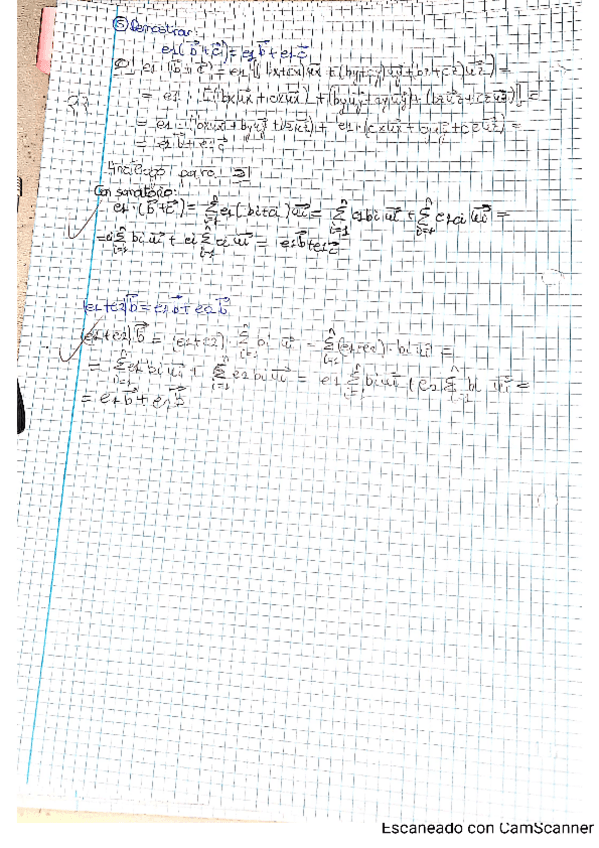 ⑤ Demostrar:
e1(b⃗+c⃗)= e1b⃗ + e1c⃗
e1 (b⃗+c⃗) = e1 [(bx+cx)ux⃗ + (by+cy)uy⃗ + (bz+cz)uz⃗] =
= e1 · [(bxux⃗+cxux⃗) + (byuy⃗+cyuy⃗) + (bzuz⃗+czuz⃗)] =
= e1 · (bxux⃗+byuy⃗+bzuz⃗) + e1 · (cxux⃗+cyuy⃗+czuz⃗) =
= e1b⃗ + e1c⃗
??
para
Con sumatorio:
e1 · (b⃗+c⃗) = Σ e1(bi+ci)ui⃗ = Σ e1 bi ui⃗ + Σ e1 ci ui⃗ =
= e1 Σ bi ui⃗ + e1 Σ ci ui⃗ = e1b⃗+e1c⃗
(e1+e2)b⃗ = e1b⃗ + e2b⃗
(e1+e2)b⃗ = (e1+e2) · Σ bi ui⃗ = Σ(e1+e2) · bi ui⃗ =
= Σ e1 bi ui⃗ + Σ e2 bi ui⃗ = e1 Σ bi ui⃗ + e2 Σ bi ui⃗ =
= e1b⃗ + e2b⃗
Escaneado con CamScanner